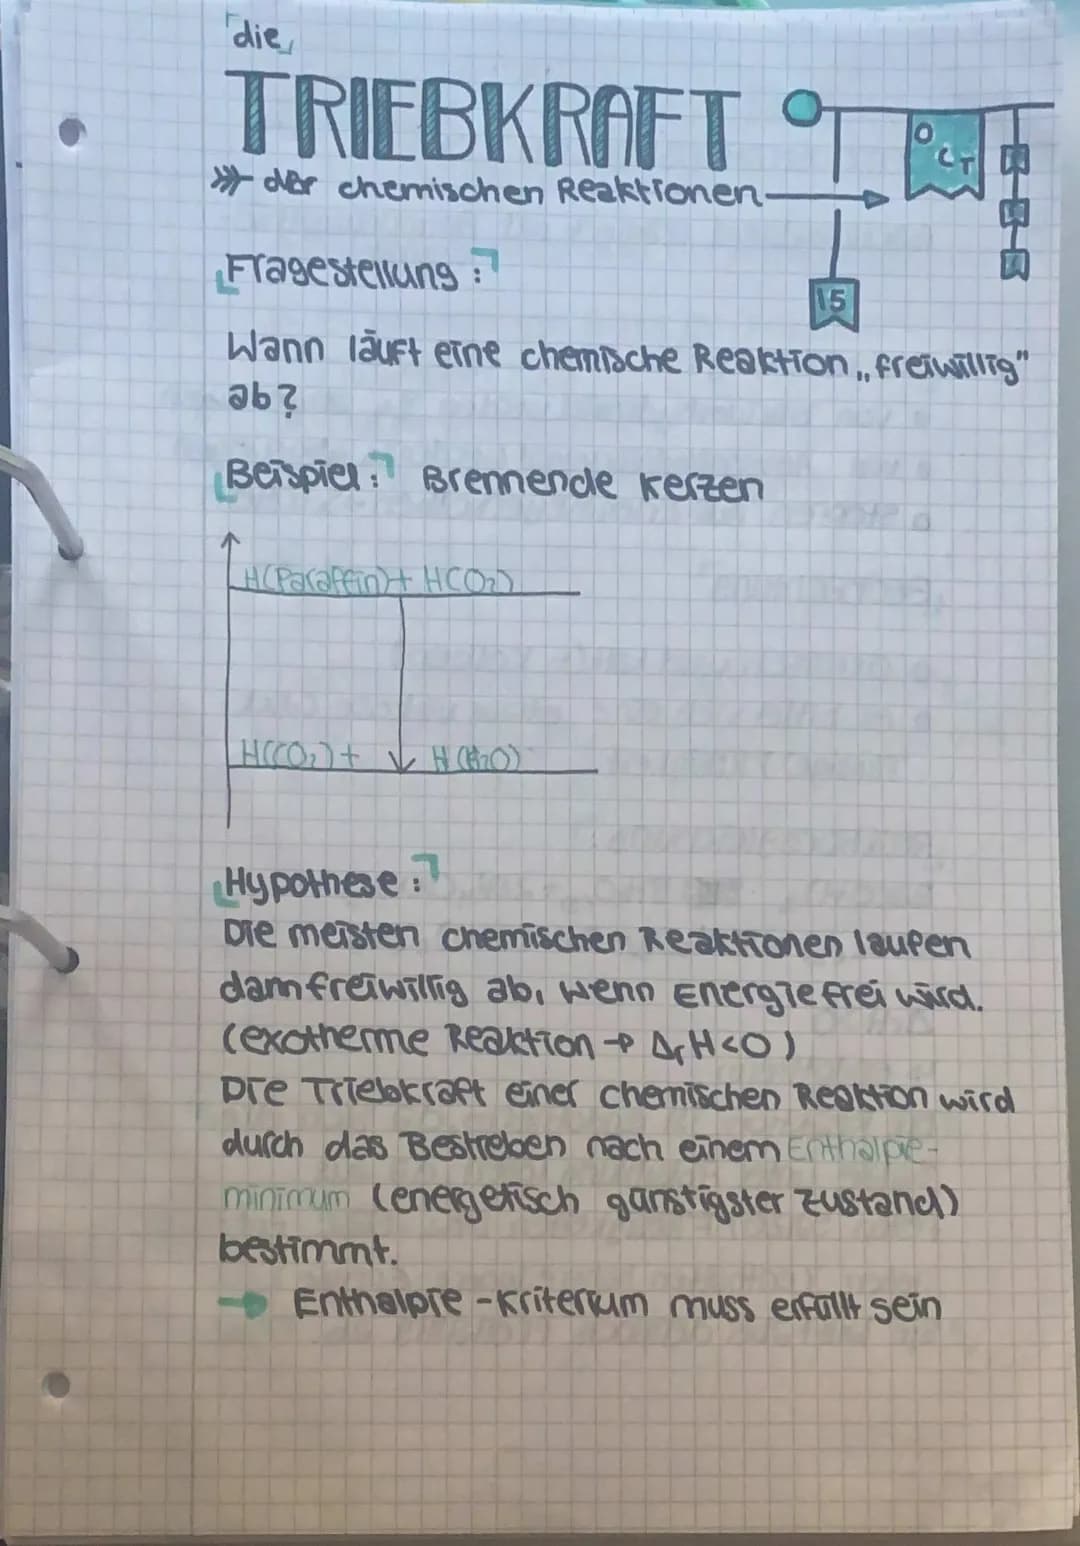 die
TRIEBKRAFT
OCT
der chemischen Reaktionen
15
Fragestellung:
Wann läuft eine chemische Reaktion „freiwillig"
ab?
Beispiel: Brennende Kerzen
H(Paraffin)+ H(O₂)
H(CO₂)+ H(H₂O)
Hypothese:
Die meisten chemischen Reaktionen laufen
dann freiwillig ab, wenn Energie frei wird.
(exotherme Reaktion → ΔrH<0)
Die Triebkraft einer chemischen Reaktion wird
durch das Bestreben nach einem Enthalpie-
minimum (energetisch günstigster Zustand)
bestimmt.
→ Enthalpie-Kriterium muss erfüllt sein